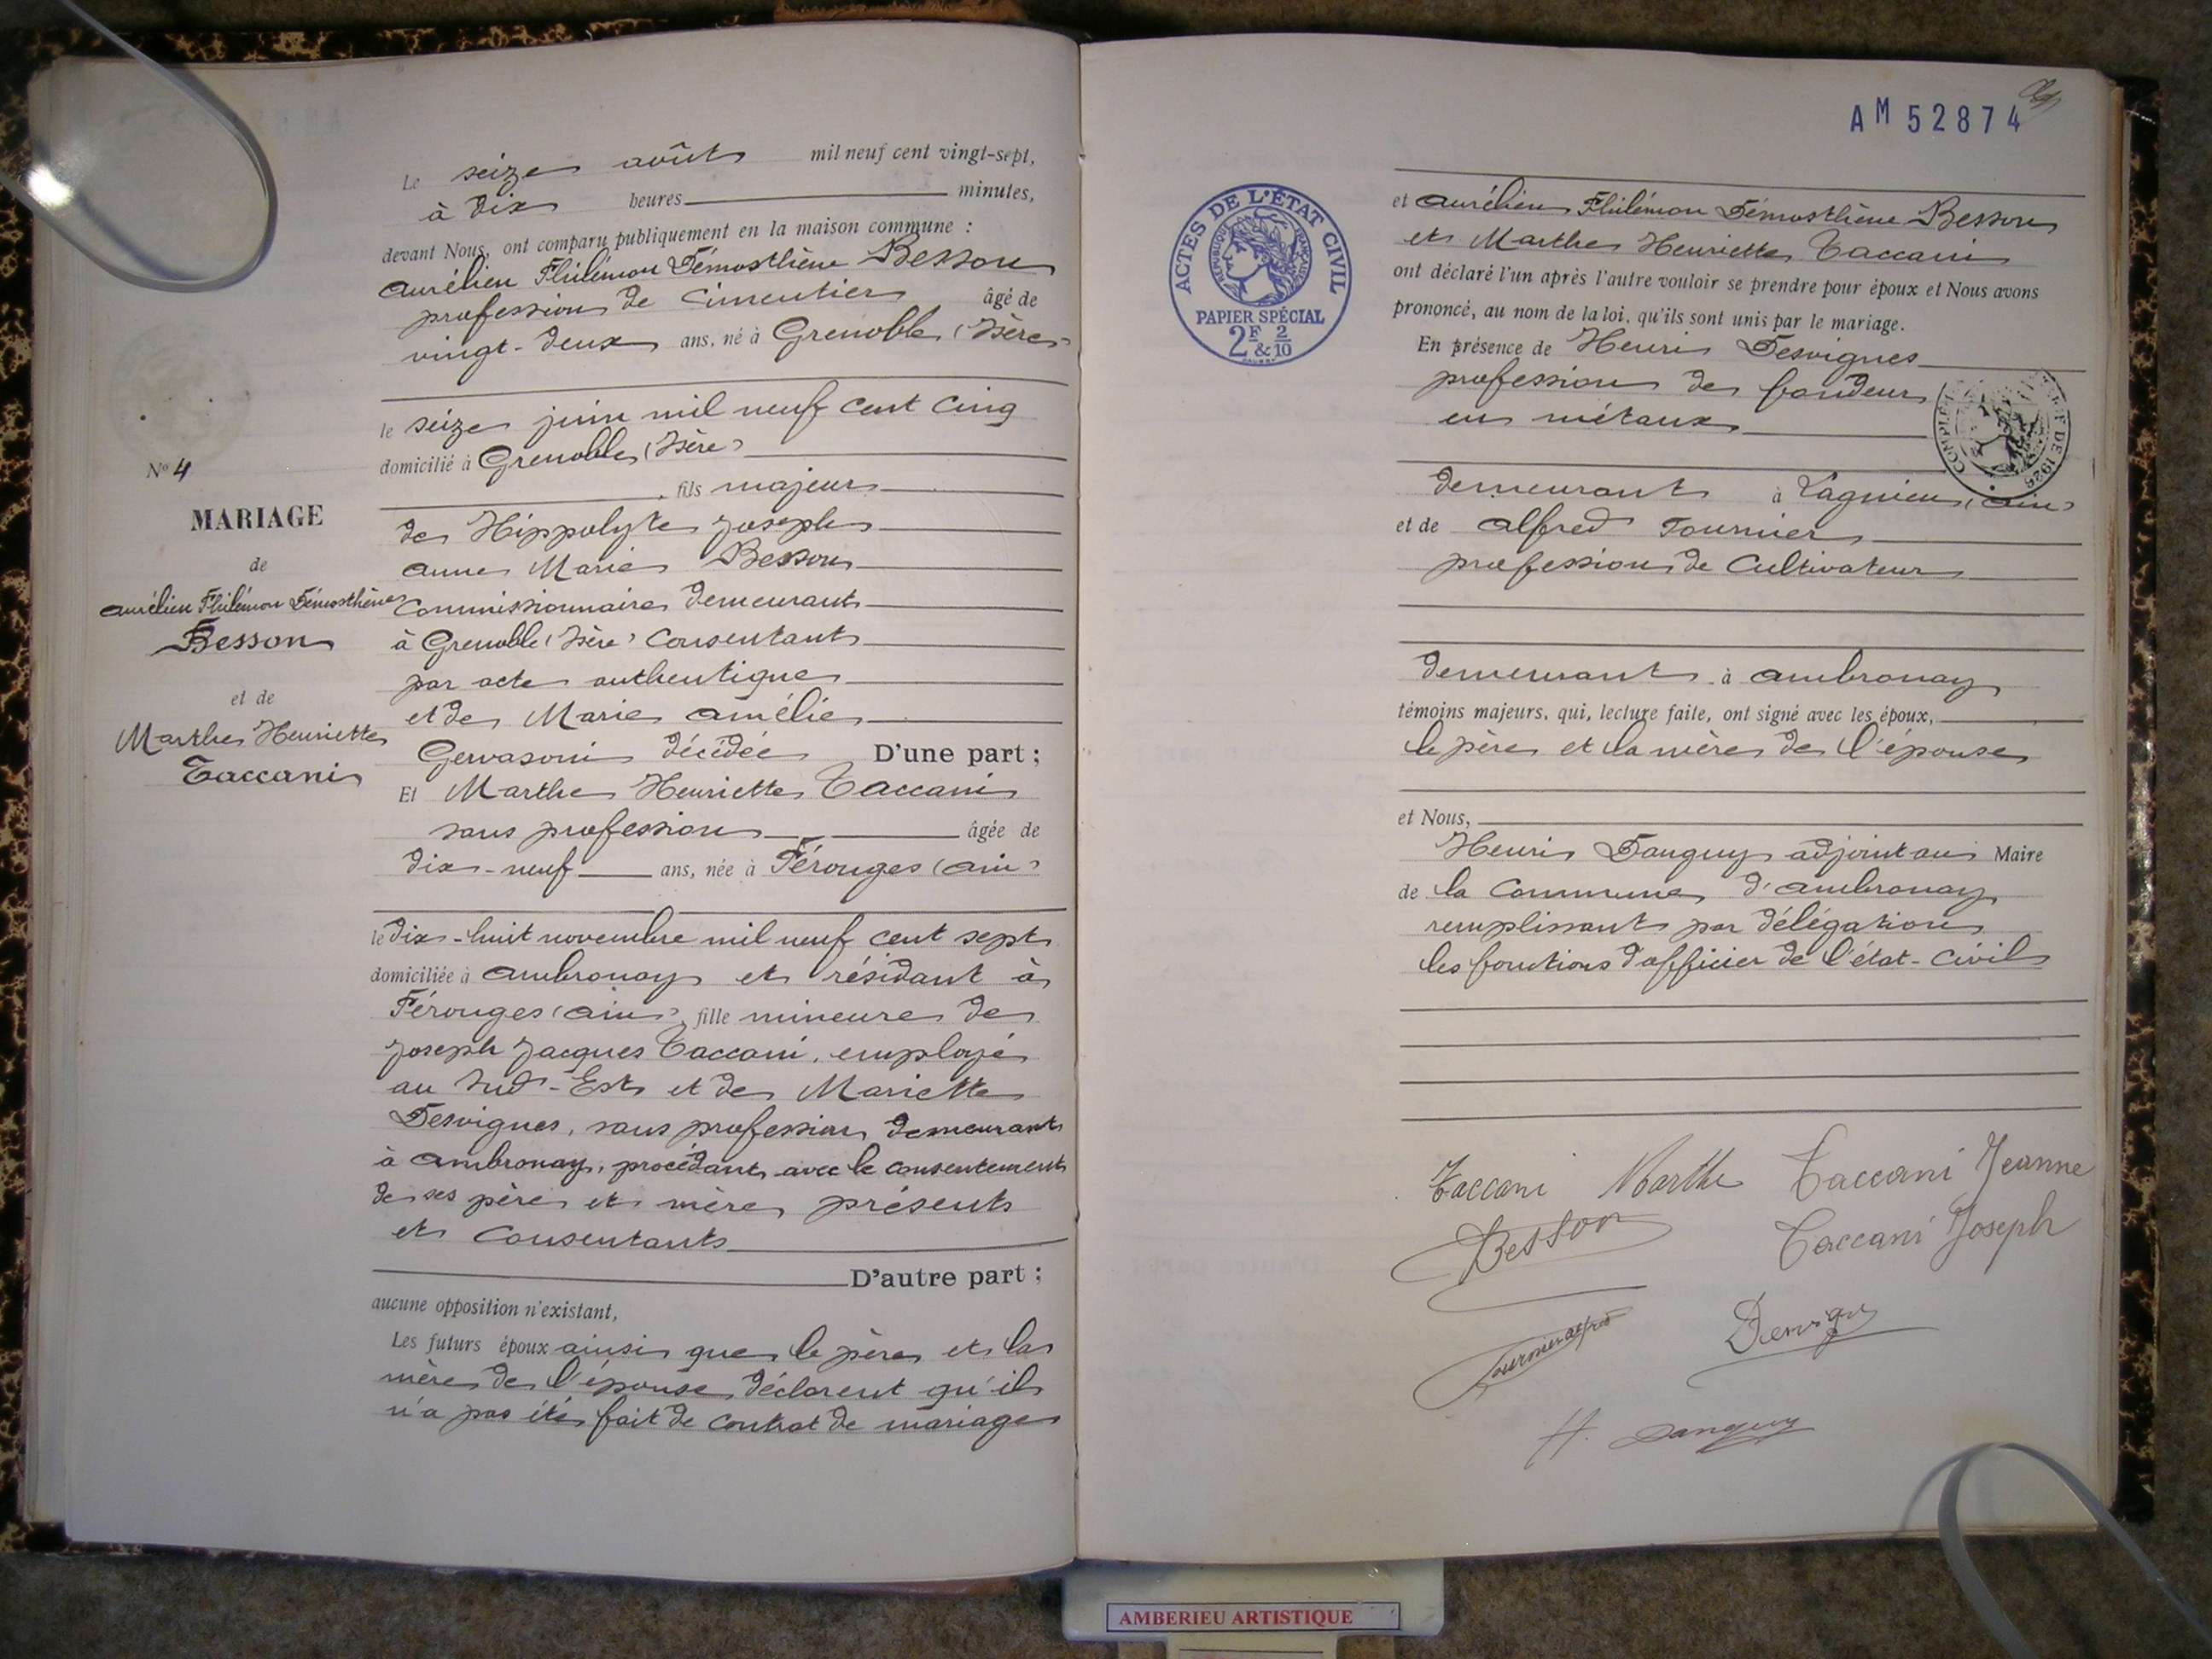 Le seize août mil neuf cent vingt-sept,
à dix heures minutes,
devant Nous, ont comparu publiquement en la maison commune :
Aurélien Philémon Démosthène Besson
profession de Cimentier âgé de
vingt-deux ans, né à Grenoble (Isère)
le seize juin mil neuf cent cinq
domicilié à Grenoble (Isère)
, fils majeur
de Hippolyte Joseph
Anne Marie Besson
Commissionnaire demeurant
à Grenoble (Isère) Consentant
par acte authentique
et de Marie Amélie
Gervasoni décédée D'une part ;
Et Marthe Henriette Taccani
sans profession âgée de
dix-neuf ans, née à Pérouges (Ain)
le dix-huit novembre mil neuf cent sept
domiciliée à Ambronay et résidant à
Pérouges (Ain), fille mineure de
Joseph Jacques Taccani, employé
au Sud-Est et de Mariette
Desvignes, sans profession demeurant
à Ambronay, procédant avec le consentement
de ses père et mère présents
et Consentants
D'autre part ;
aucune opposition n'existant,
Les futurs époux ainsi que le père et la
mère de l'épouse déclarent qu'il
n'a pas été fait de contrat de mariage
No 4
MARIAGE
de
Aurélien Philémon Démosthène
Besson
et de
Marthe Henriette
Taccani
AM 52874
ACTES DE L'ÉTAT CIVIL
RÉPUBLIQUE FRANÇAISE
PAPIER SPÉCIAL
2F & 2/10
et Aurélien Philémon Démosthène Besson
et Marthe Henriette Taccani
ont déclaré l'un après l'autre vouloir se prendre pour époux et Nous avons
prononcé, au nom de la loi, qu'ils sont unis par le mariage.
En présence de Henri Desvignes
profession de fondeur
en métaux
demeurant à Lagnieu (Ain)
et de Alfred Fournier
profession de Cultivateur
demeurant à Ambronay
témoins majeurs, qui, lecture faite, ont signé avec les époux,
le père et la mère de l'épouse
et Nous,
Henri Danguy adjoint au Maire
de la Commune d'Ambronay
remplissant par délégation
les fonctions d'officier de l'état-civil
Taccani Marthe Taccani Jeanne
Besson Taccani Joseph
Fournier Alfred Desvignes
H. Danguy
AMBERIEU ARTISTIQUE